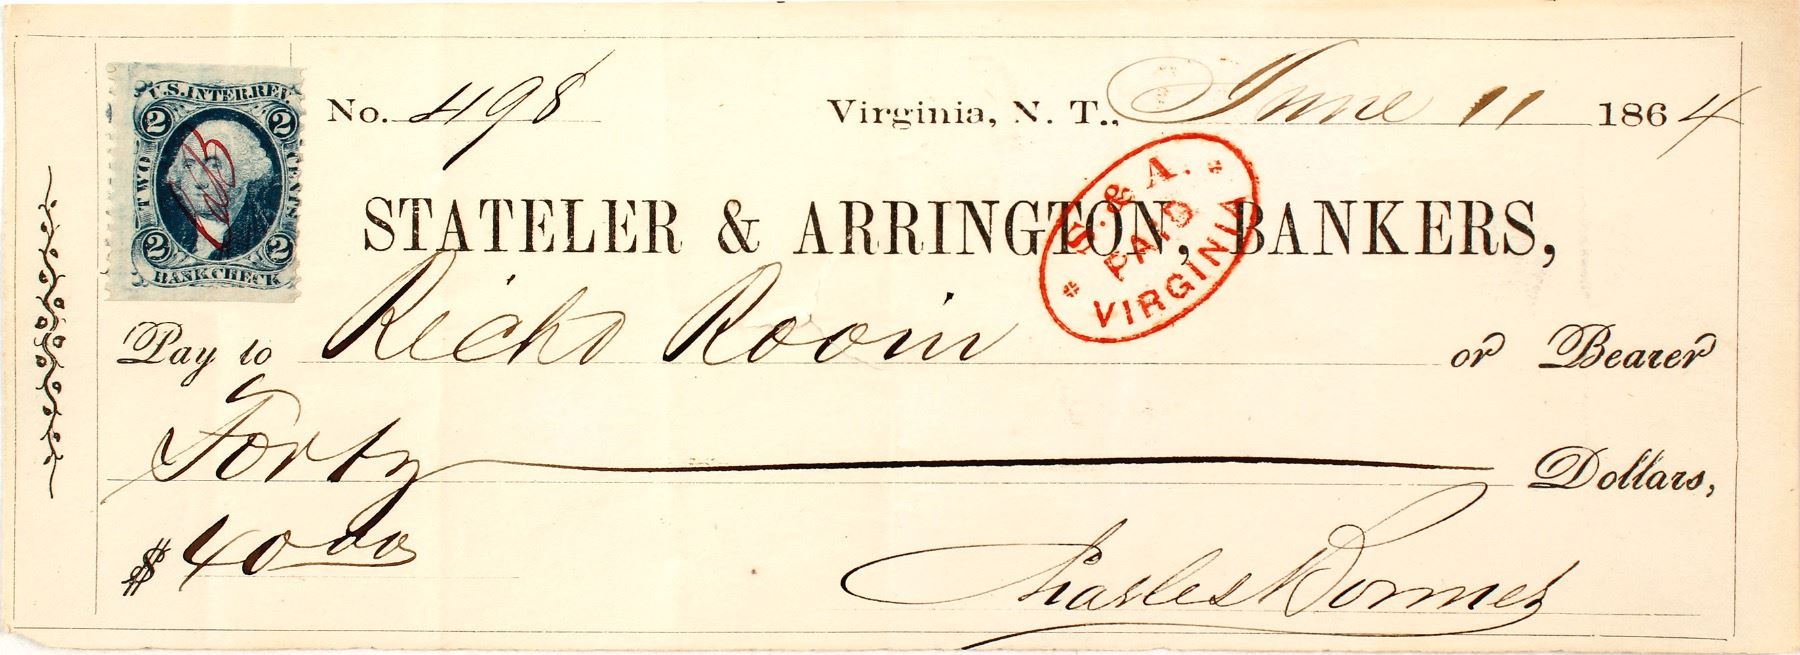 U.S. INTER. REV.
2 2
TWO CENTS
2 2
BANK CHECK
No. 498 Virginia, N. T., June 11 1864
STATELER & ARRINGTON, BANKERS,
S. & A.
PAID
VIRGINIA
Pay to Richd Room or Bearer
Forty Dollars,
$ 40 00
Charles